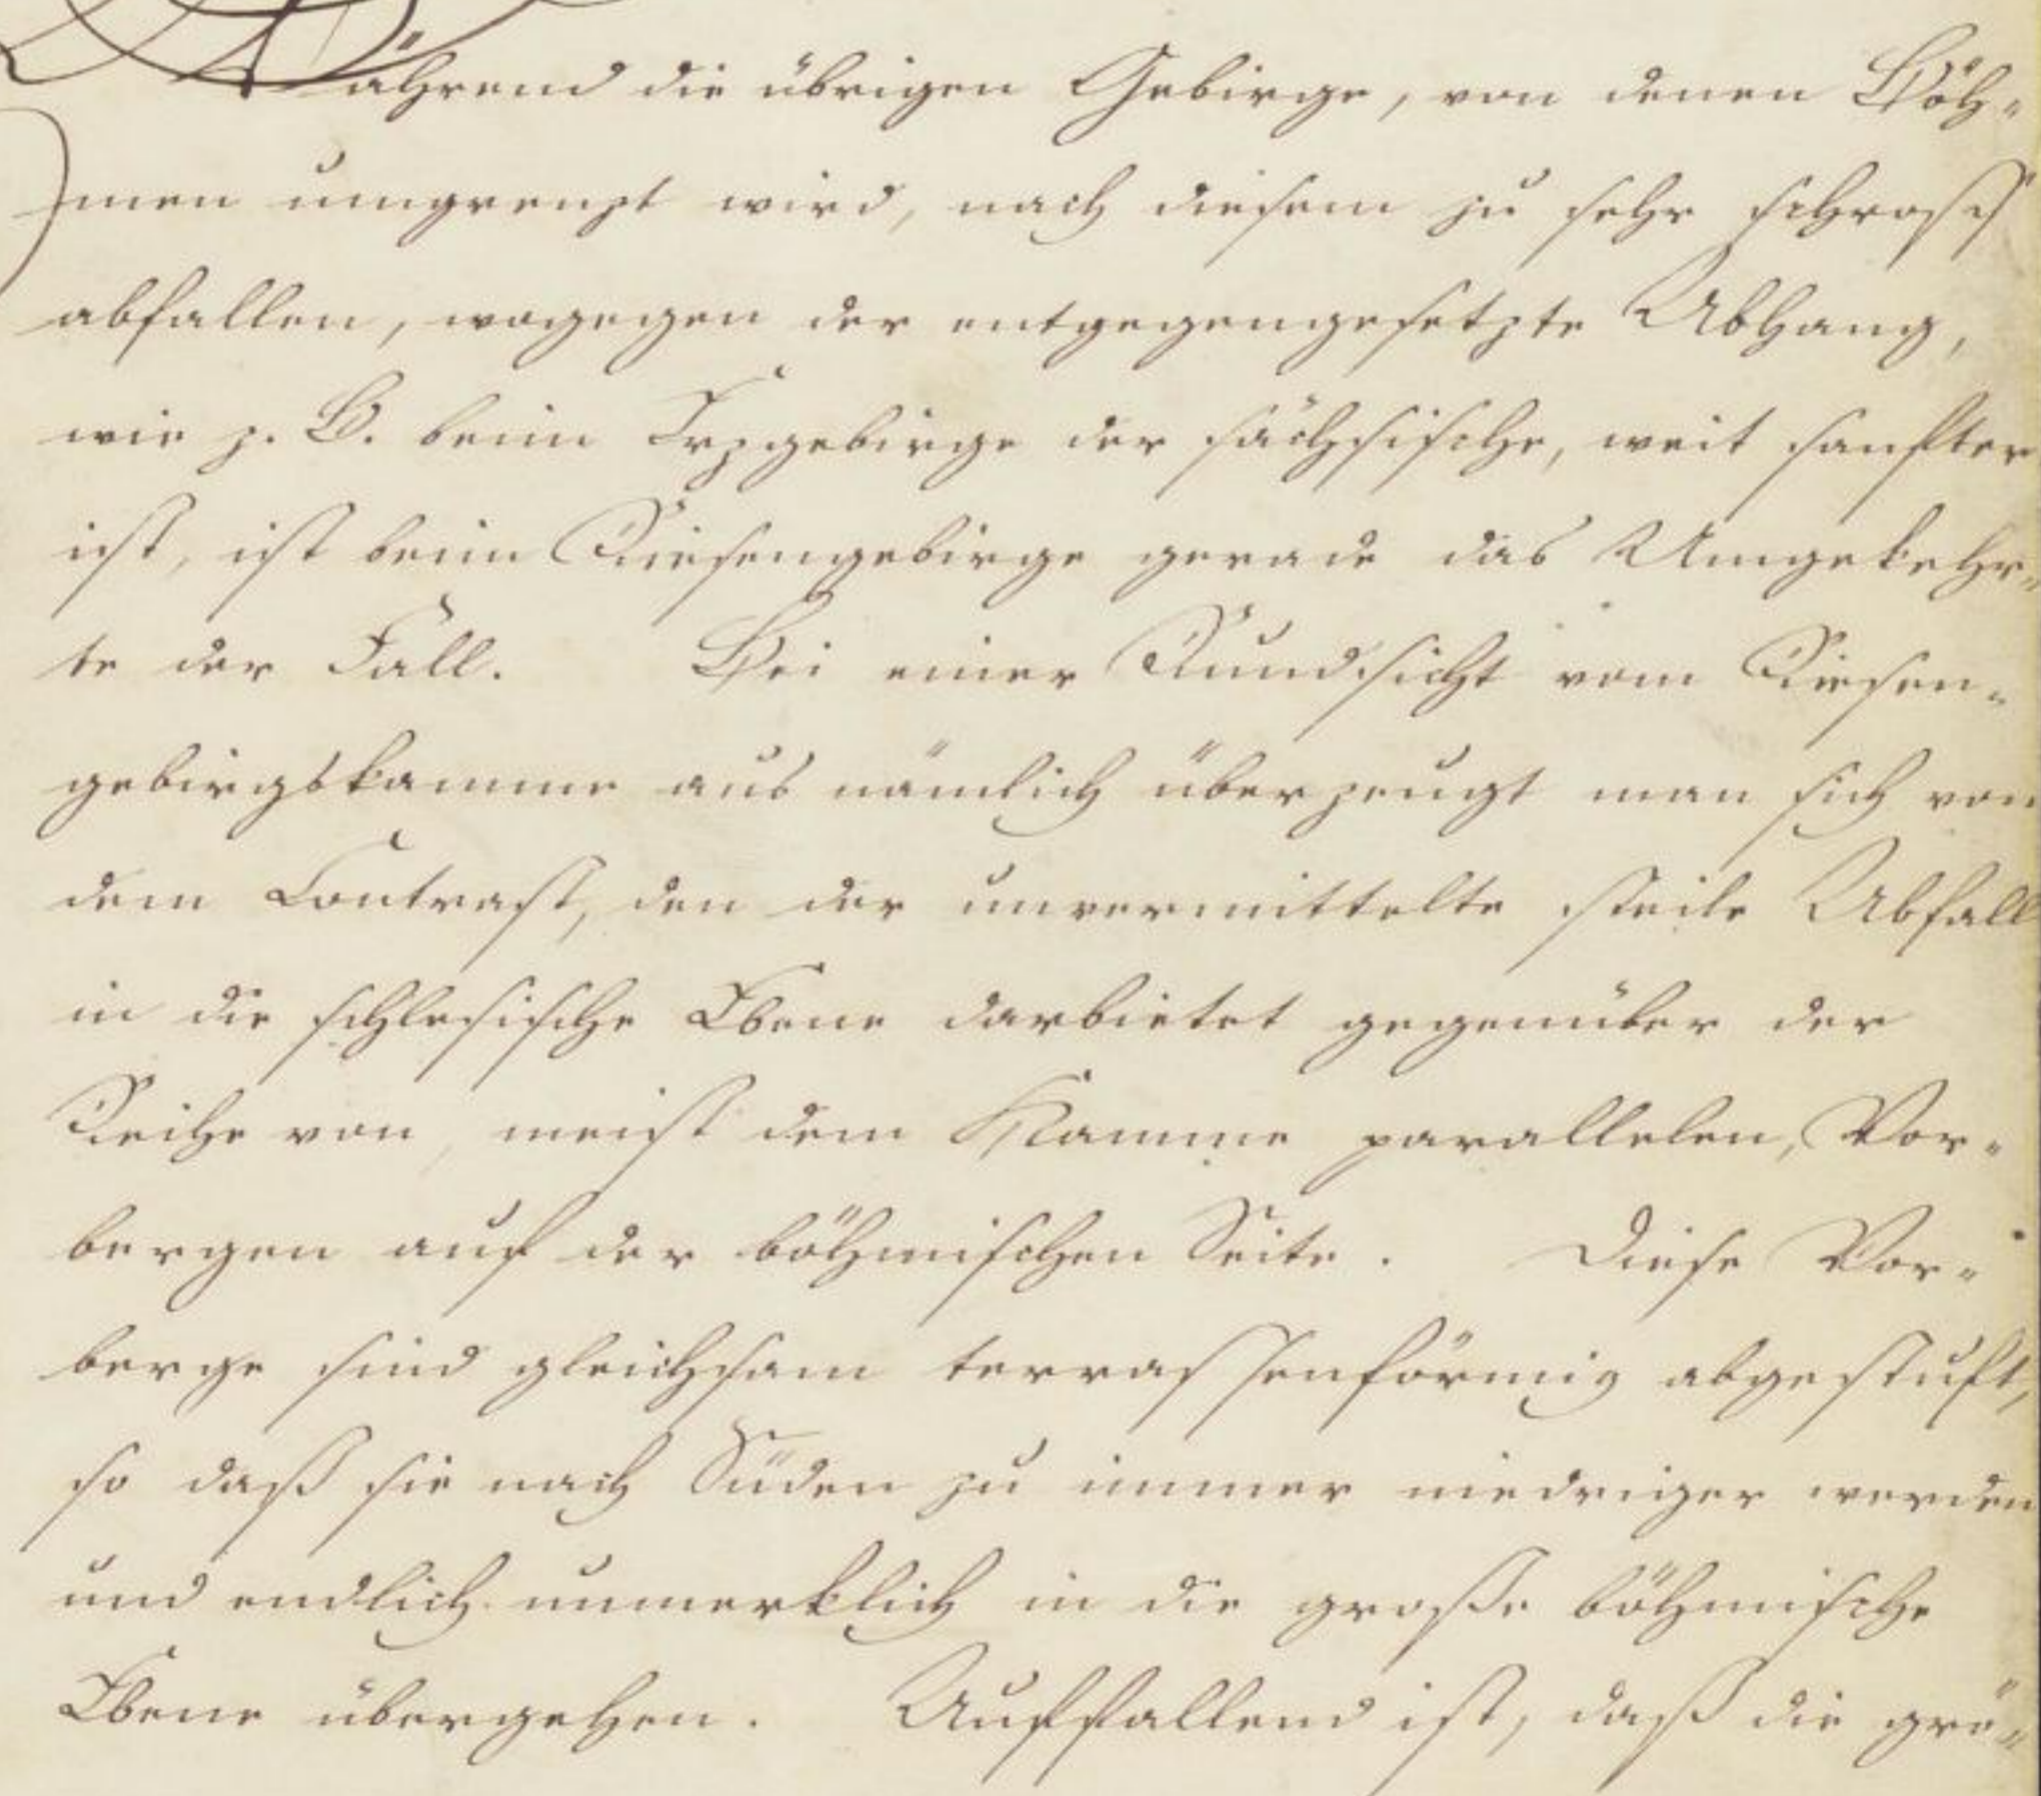 Während die übrigen Gebirge, von denen Böh-
men umgrenzt wird, nach diesem zu sehr schroff
abfallen, wogegen der entgegengesetzte Abhang,
wie z. B. beim Erzgebirge der sächsische, weit sanfter
ist, ist beim Riesengebirge gerade das Umgekehr-
te der Fall. Bei einer Rundsicht vom Riesen-
gebirgskamme aus nämlich überzeugt man sich von
dem Contrast, den der unvermittelte steile Abfall
in die schlesische Ebene darbietet gegenüber der
Reihe von, meist dem Kamme parallelen, Vor-
bergen auf der böhmischen Seite. Diese Vor-
berge sind gleichsam terrassenförmig abgestuft,
so daß sie nach Süden zu immer niedriger werden
und endlich unmerklich in die große böhmische
Ebene übergehen. Auffallend ist, daß die grö-